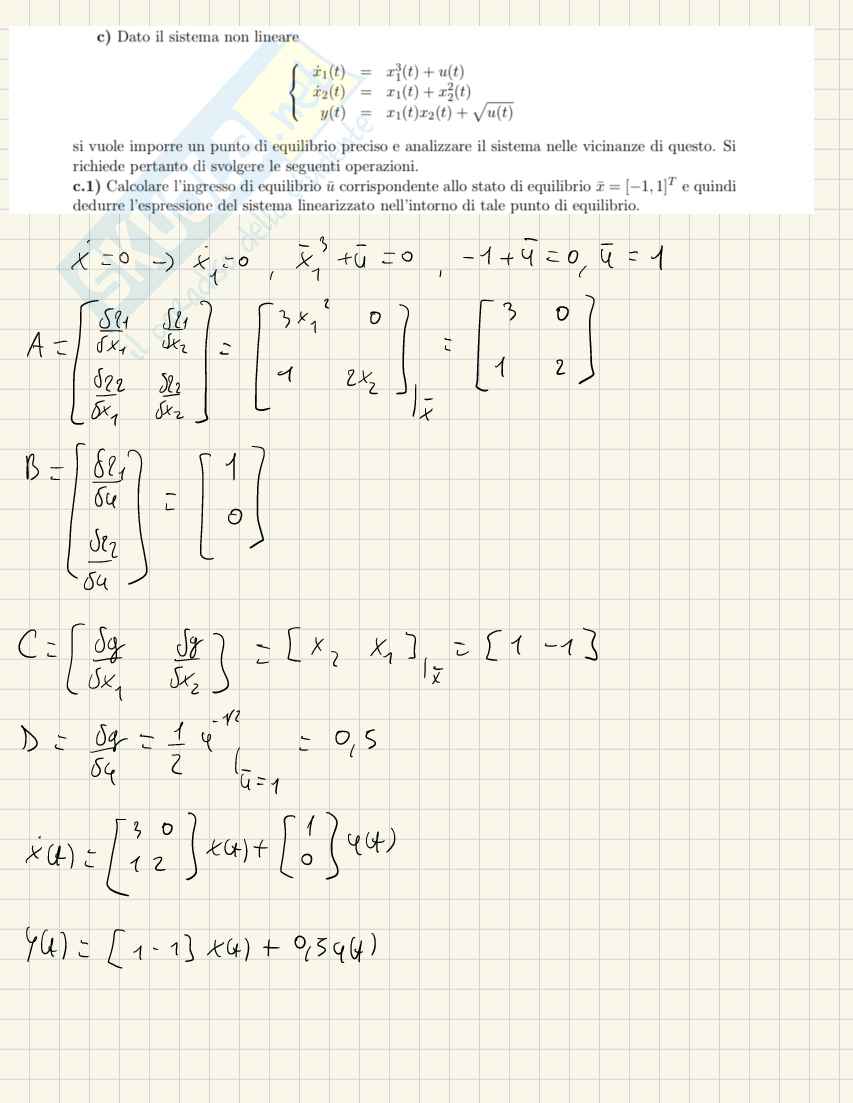 c) Dato il sistema non lineare
ẋ1(t) = x1³(t) + u(t)
ẋ2(t) = x1(t) + x2²(t)
y(t) = x1(t)x2(t) + √u(t)
si vuole imporre un punto di equilibrio preciso e analizzare il sistema nelle vicinanze di questo. Si
richiede pertanto di svolgere le seguenti operazioni.
c.1) Calcolare l'ingresso di equilibrio ū corrispondente allo stato di equilibrio x̄ = [−1, 1]ᵀ e quindi
dedurre l'espressione del sistema linearizzato nell'intorno di tale punto di equilibrio.
ẋ=0 → ẋ1=0, x̄1³+ū=0, -1+ū=0, ū=1
A = [δf1/δx1 δf1/δx2; δf2/δx1 δf2/δx2] = [3x1² 0; 1 2x2]|x̄ = [3 0; 1 2]
B = [δf1/δu; δf2/δu] = [1; 0]
C = [δg/δx1 δg/δx2] = [x2 x1]|x̄ = [1 -1]
D = δg/δu = 1/2 u^-1/2 |ū=1 = 0,5
ẋ(t) = [3 0; 1 2] x(t) + [1; 0] u(t)
y(t) = [1 -1] x(t) + 0,5u(t)